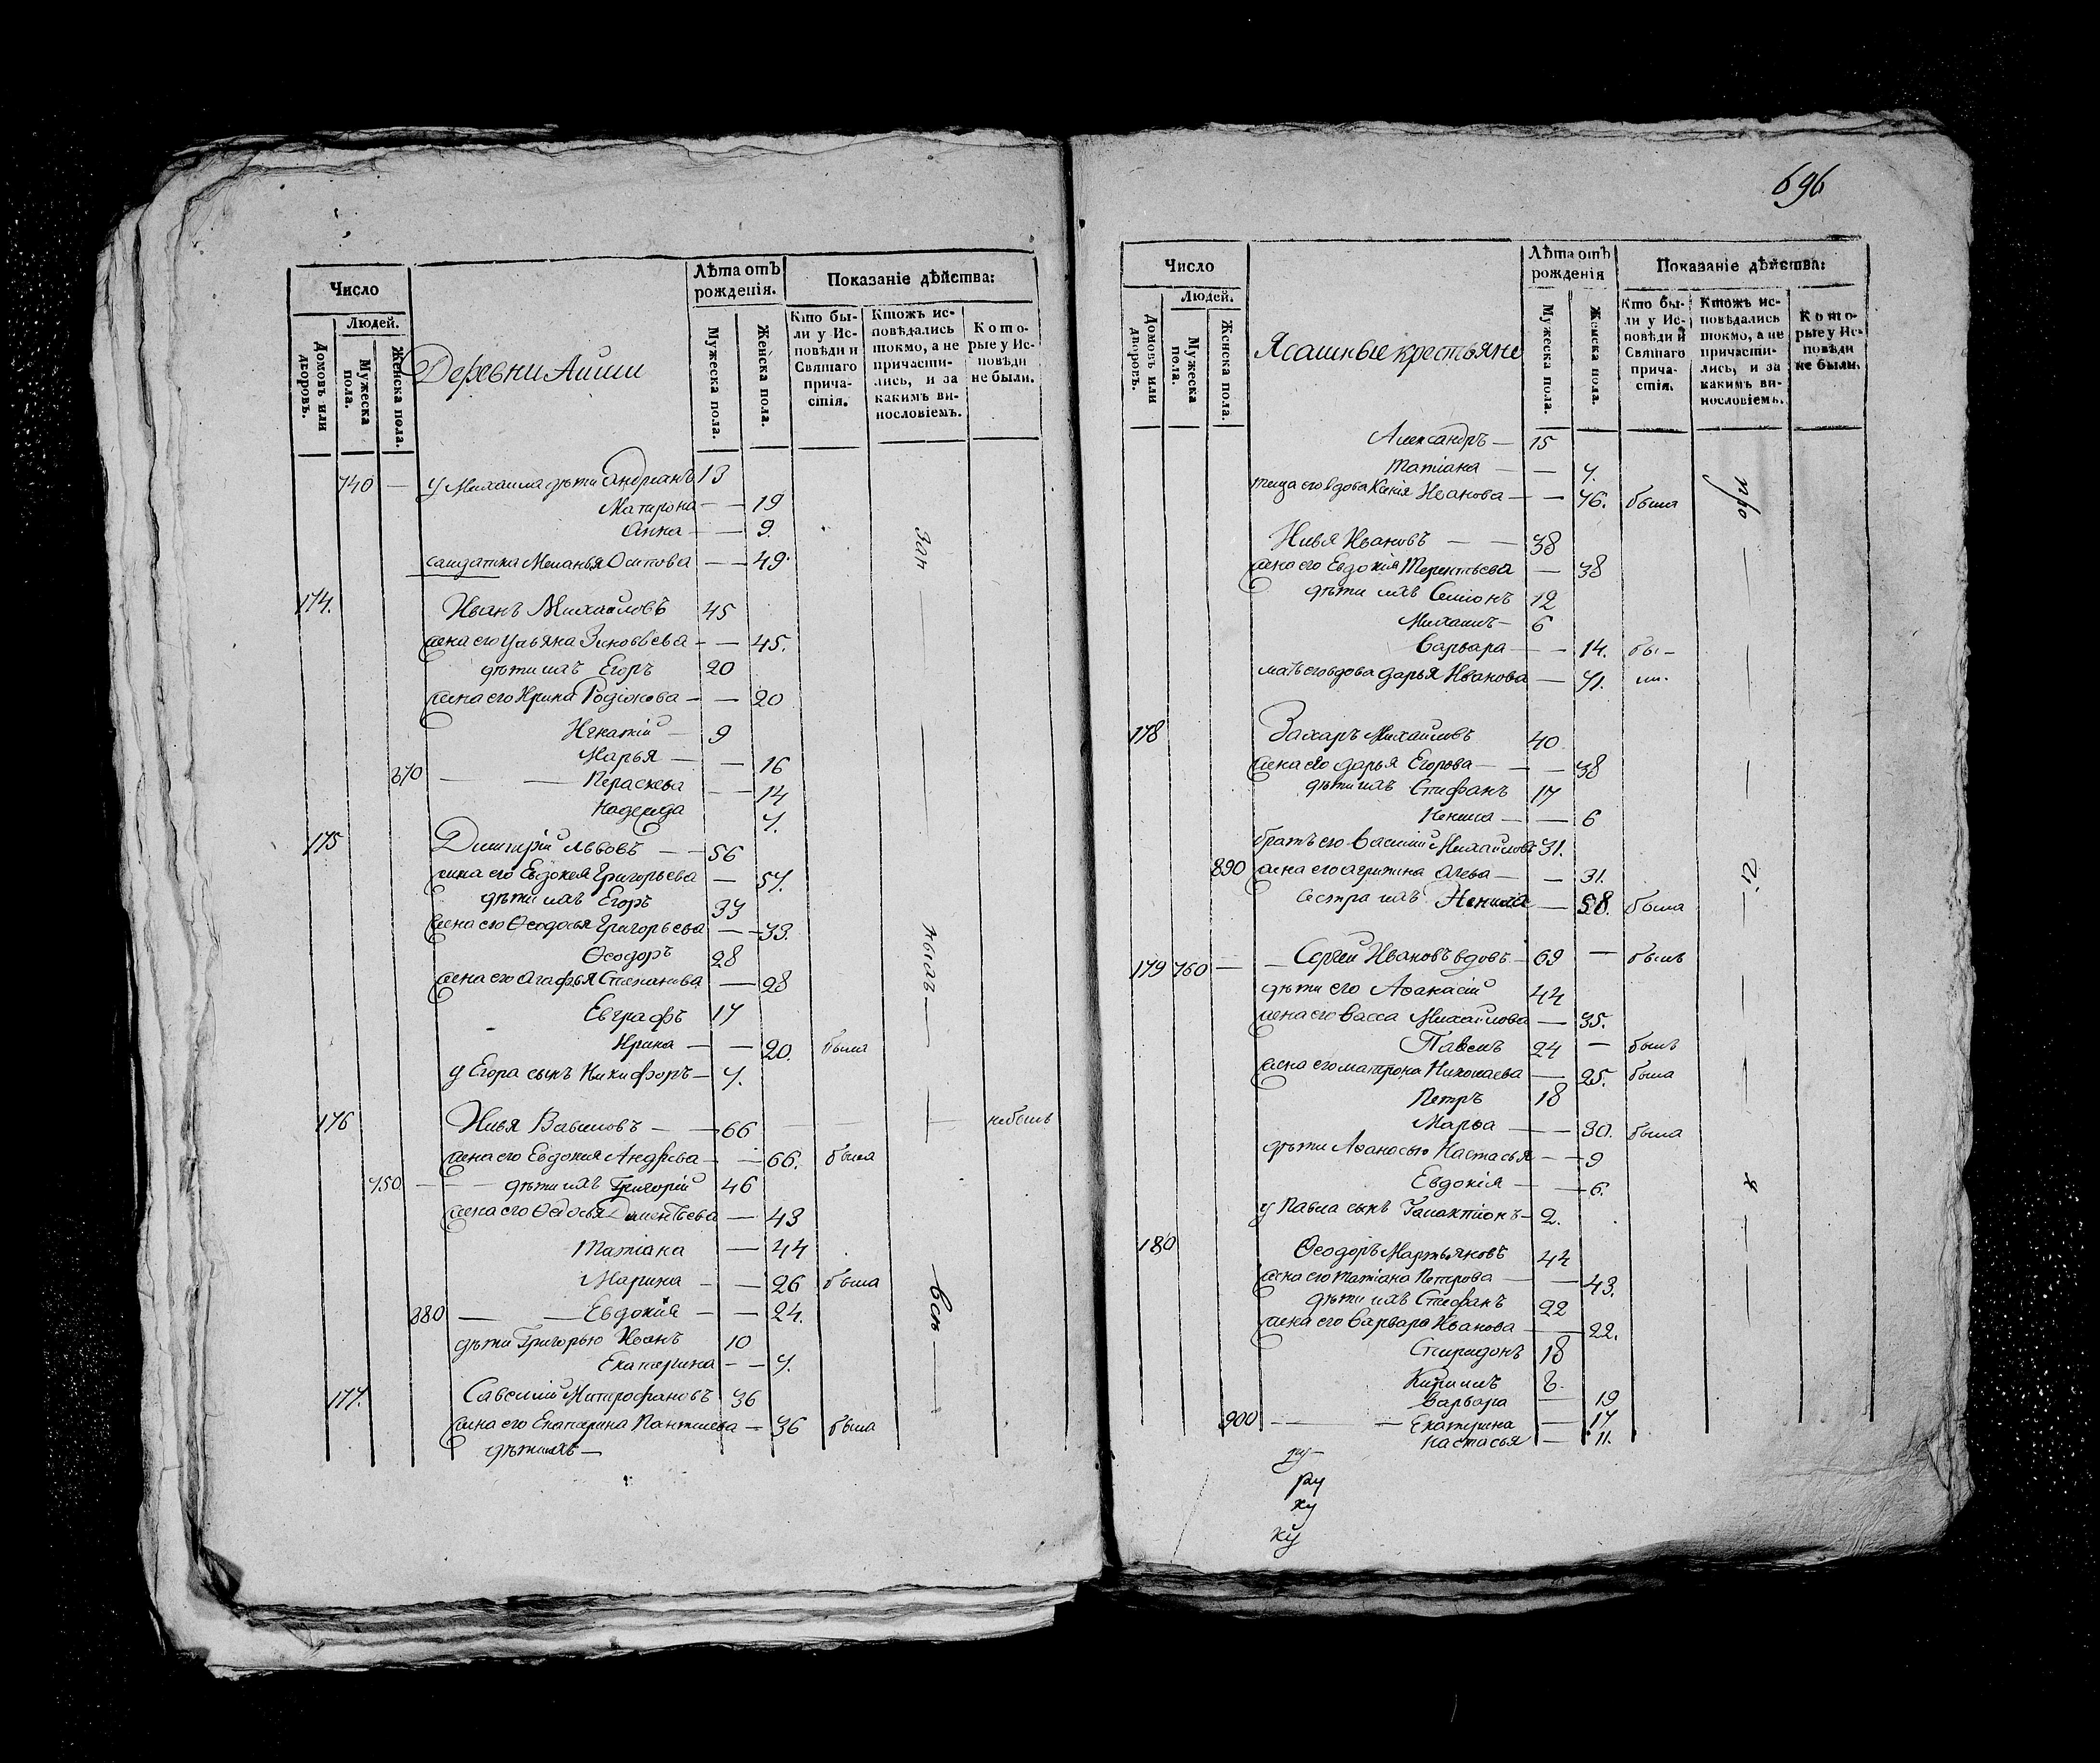 Число
Людей.
Домовъ или дворовъ.
Мужеска пола.
Женска пола.
Деревни Аиши
Лѣта отъ рожденія.
Мужеска пола.
Женска пола.
Показаніе дѣйства:
Кто бы-
ли у Ис-
повѣди и
Святаго
прича-
стія.
Ктожъ ис-
повѣдались
токмо, а не
причасти-
лись, и за
какимъ ви-
нословіемъ.
Кото-
рые у Ис-
повѣди
не были.
740 — у Михаила дѣти Андрианъ 13
Матрона — — 19
Анна — — 9.
салдатка Меланья Осипова — — 49.
174. Иванъ Михаиловъ 45
жена его Ульяна Зиновьева — — 45.
дѣти ихъ Егоръ 20
жена его Ирина Родіонова — — 20
Игнатій — 9
Марья — — 16
870 — — Параскева — — 14
Надежда 7.
175 Димитрій Львовъ — — 56
жена его Евдокея Григорьева — 57.
дѣти ихъ Егоръ 33
жена его Ѳеодосья Григорьева — — 33.
Ѳеодоръ 28
жена его Агафья Степанова — 28
Евграфъ 17
Ирина — — 20. была
у Егора сынъ Никифоръ — 7.
176 Илья Вавиловъ — — 66 — — небылъ
жена его Евдокия Андрева — — 66. была
750 — — дѣти ихъ Григорій 46
жена его Ѳедосья Дементьева — 43
Татіана — 44
Марина — — 26 была
880 — — Евдокія — — 24.
дѣти Григорью Иванъ 10
Екатерина — — 7.
177. Савелий Митрофановъ 36
жена его Екатерина Пантилева — 36 была
дѣти ихъ —
696
Число
Людей.
Домовъ или дворовъ.
Мужеска пола.
Женска пола.
Ясашные крестьяне
Лѣта отъ рожденія
Мужеска пола.
Женска пола.
Показаніе дѣйства:
Кто бы-
ли у Ис-
повѣди и
Святаго
прича-
стія.
Ктожъ ис-
повѣдались
токмо, а не
причасти-
лись, и за
какимъ ви-
нословіемъ.
Кото-
рые у Ис-
повѣди
не были.
Александръ — 15
Татіана — — 7.
теща его вдова Иванова — — 76. была
Илья Ивановъ — — 38
жена его Евдокія Терентьева — 38
дѣти ихъ Семіонъ 12
Михаилъ — 6
Варвара — — 14. бы—
мать его вдова Дарья Иванова — 71.
178 Захаръ Михаиловъ 40
жена его Дарья Егорова — — — 38
дѣти ихъ Стефанъ 17
Ненила — — 6
братъ его Василий Михайловъ 31.
890 жена его Агрипина — — 31.
сестра ихъ Ненила — 58. была
179 760 — — Сергей Ивановъ вдовъ — 69 — былъ
дѣти его Аѳанасій 44
жена его Васса Михайлова — 35.
Павелъ 24 — былъ
жена его Матрона Николаева — 25. была
Петръ 18
Марѳа — — 30. была
дѣти Аѳанасью Настасья — — 9
Евдокія — — 6.
у Павла сынъ Галактіонъ — 2.
180 Ѳеодоръ Мартьяновъ 44
жена его Татіана Петрова — — 43.
дѣти ихъ Стефанъ 22
жена его Варвара Иванова — — 22.
Спиридонъ 18
Кирилъ 8.
Варвара — 19
900 — — Екатерина — 17
Настасья — 11.
ру
ку
ку